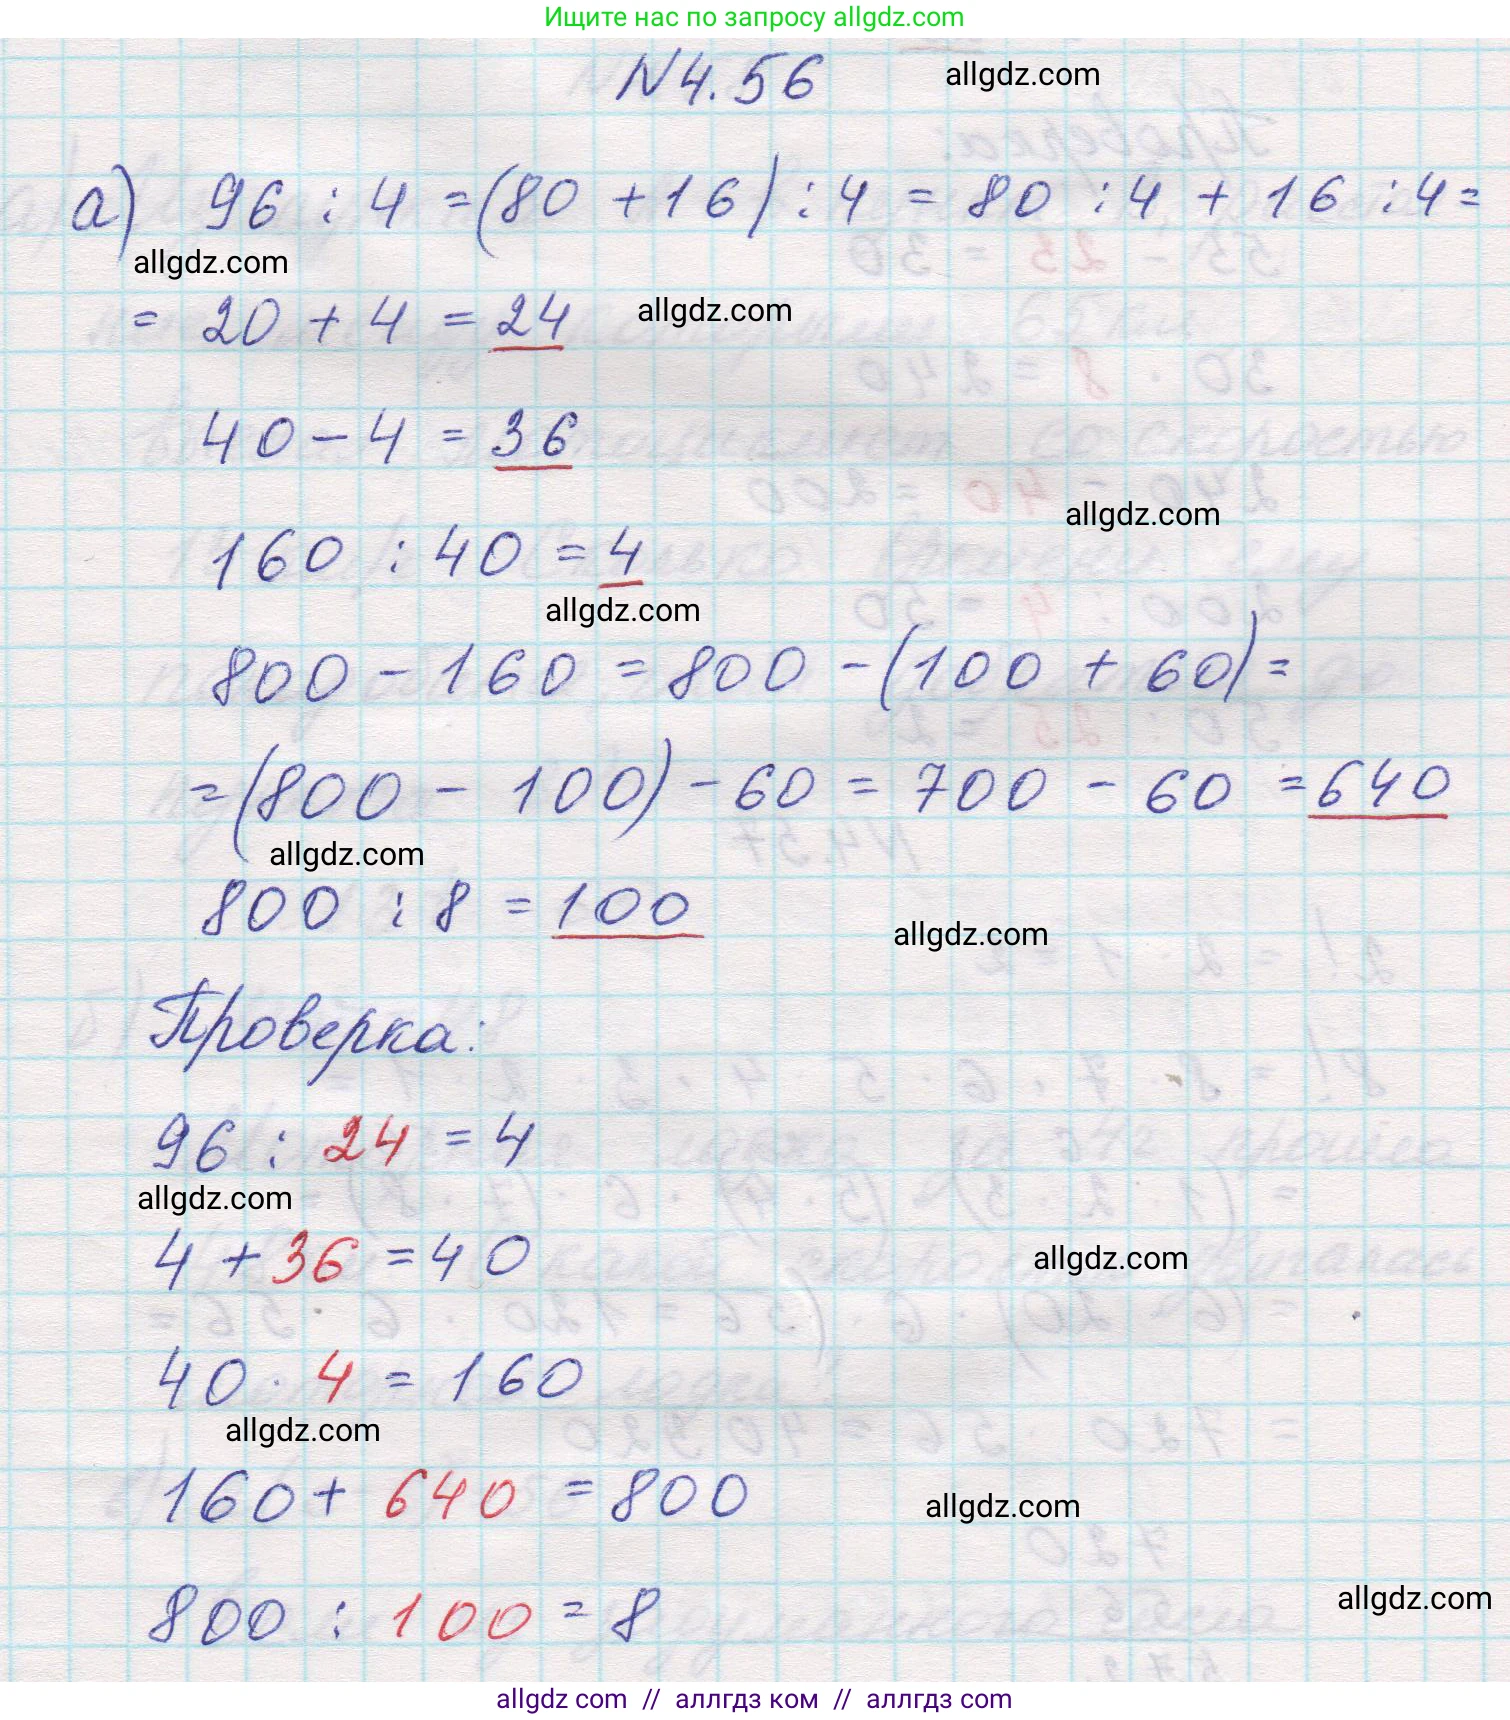 Ищите нас по запросу allgdz.com
N4.56
allgdz.com
а) 96 : 4 = (80 + 16) : 4 = 80 : 4 + 16 : 4 =
allgdz.com
= 20 + 4 = 24
allgdz.com
40 - 4 = 36
allgdz.com
160 : 40 = 4
allgdz.com
800 - 160 = 800 - (100 + 60) =
= (800 - 100) - 60 = 700 - 60 = 640
allgdz.com
800 : 8 = 100
allgdz.com
Проверка:
96 : 24 = 4
allgdz.com
4 + 36 = 40
allgdz.com
40 · 4 = 160
allgdz.com
160 + 640 = 800
allgdz.com
800 : 100 = 8
allgdz.com
allgdz com // аллгдз ком // аллгдз com